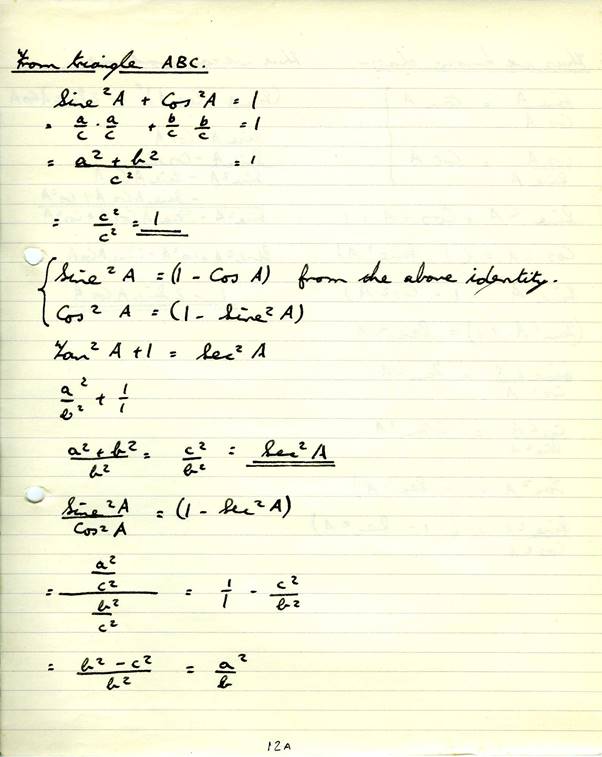 From triangle ABC.
Sine² A + Cos² A = 1
= a/c · a/c + b/c b/c = 1
= (a² + b²)/c² = 1
= c²/c² = 1
{ Sine² A = (1 - Cos A) from the above identity.
Cos² A = (1 - Sine² A)
Tan² A + 1 = Sec² A
a²/b² + 1/1
(a² + b²)/b² = c²/b² = Sec² A
Sine² A/Cos² A = (1 - Sec² A)
= (a²/c²)/(b²/c²) = 1/1 - c²/b²
= (b² - c²)/b² = a²/b
12A